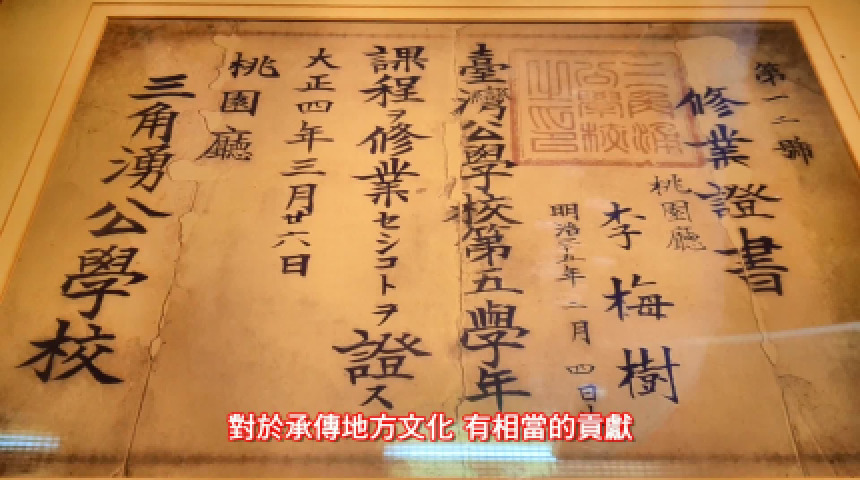 第一二號
修業證書
桃園廳
李梅樹
明治三五年二月四日
三角湧公學校之印
臺灣公學校第五學年
課程ヲ修業セシコトヲ證ス
大正四年三月廿六日
桃園廳
三角湧公學校
對於承傳地方文化 有相當的貢獻